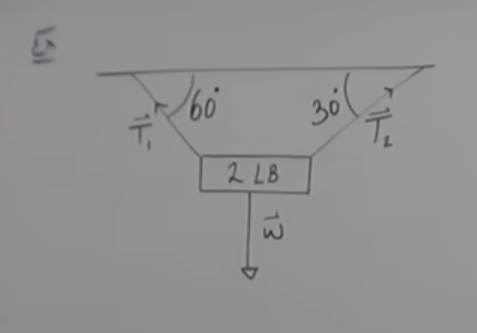 60°
30°
T₁
T₂
2 LB
w